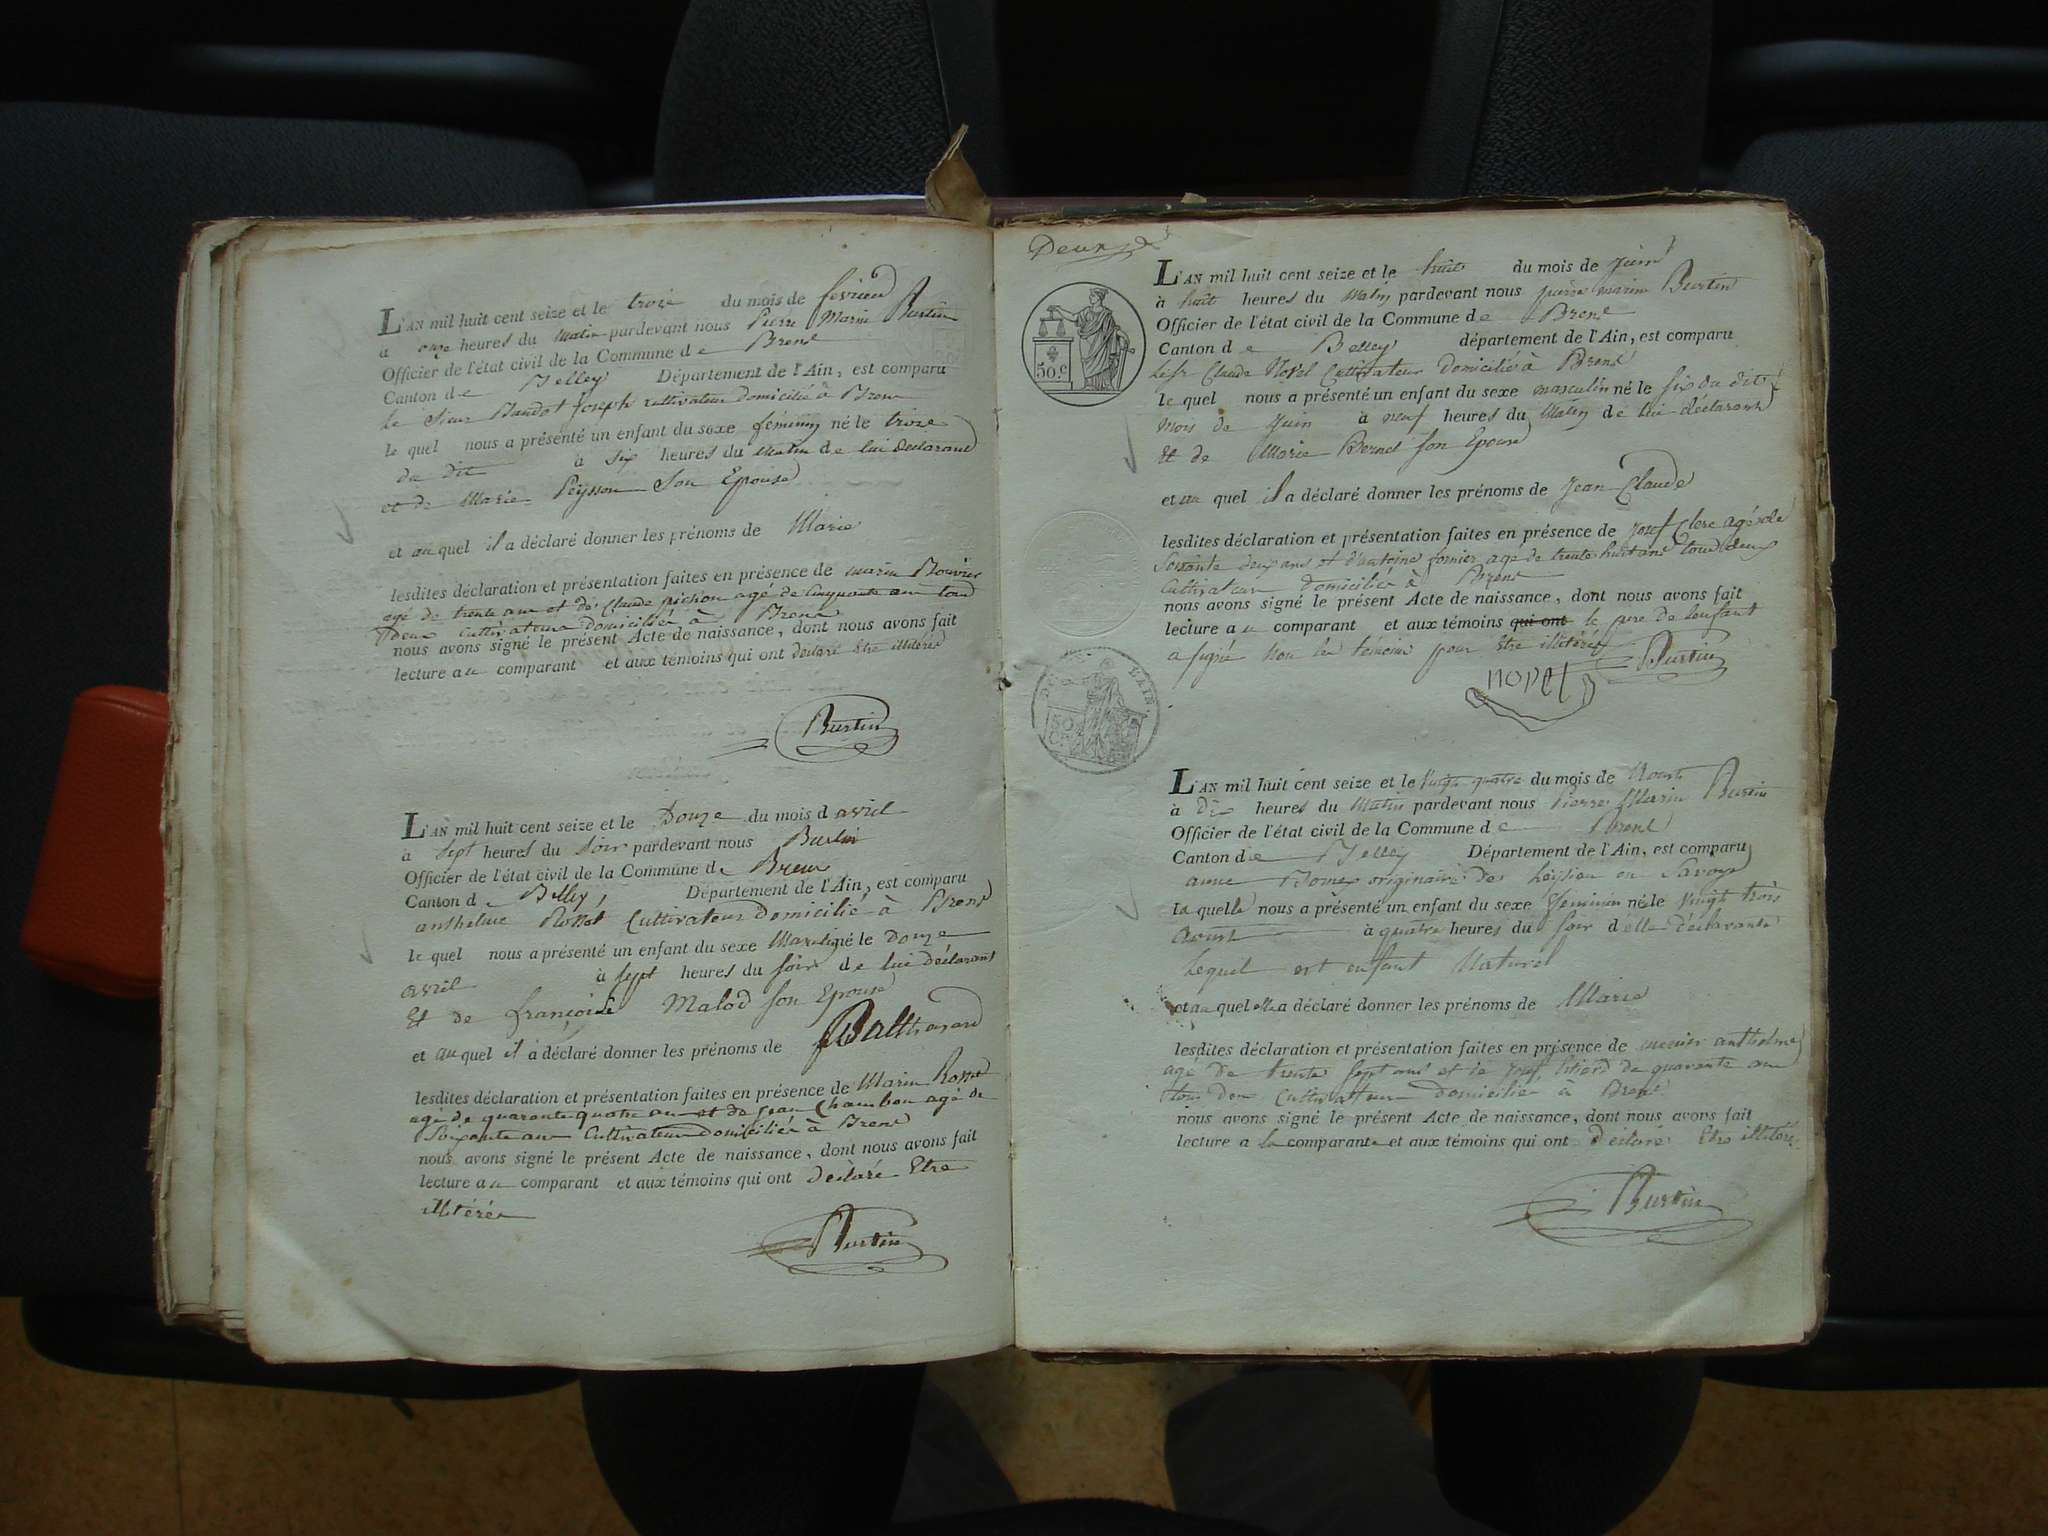 L'AN mil huit cent seize et le trois du mois de fevrier
à onze heures du matin pardevant nous Pierre Marin Burtin
Officier de l'état civil de la Commune de Brens
Canton de Belley Département de l'Ain, est comparu
le Sieur Baudot joseph cultivateur domicilié à Brens
le quel nous a présenté un enfant du sexe féminin né le trois
du dit à six heures du matin de lui déclarant
et de Marie Peysson son Epouse
et au quel il a déclaré donner les prénoms de Marie
lesdites déclaration et présentation faites en présence de marin Bouvier
agé de trente ans et de Claude pichon agé de Cinquante ans tous
deux cultivateurs domiciliés à Brens
nous avons signé le présent Acte de naissance, dont nous avons fait
lecture au comparant et aux témoins qui ont declaré Etre illitérés
Burtin
L'AN mil huit cent seize et le Douze du mois d avril
à sept heures du soir pardevant nous Burtin
Officier de l'état civil de la Commune de Brens
Canton de Belley, Département de l'Ain, est comparu
anthelme Rosset Cultivateur domicilié à Brens
le quel nous a présenté un enfant du sexe Masculin né le Douze
avril à sept heures du soir de lui déclarant
Et de françoise Malod son Epouse
et au quel il a déclaré donner les prénoms de Balthazard
lesdites déclaration et présentation faites en présence de Marin Rosset
agé de quarante quatre ans et de jean Chambon agé de
soixante ans Cultivateurs domiciliés à Brens
nous avons signé le présent Acte de naissance, dont nous avons fait
lecture au comparant et aux témoins qui ont déclaré Etre
illitérés
Burtin
Deux
50.c
L'AN mil huit cent seize et le huit du mois de juin
à huit heures du matin pardevant nous pierre marin Burtin
Officier de l'état civil de la Commune de Brens
Canton de Belley département de l'Ain, est comparu
le sr Claude Novel Cultivateur domicilié à Brens
le quel nous a présenté un enfant du sexe masculin né le six du dit
mois de juin à neuf heures du matin de lui déclarant
Et de Marie Bornet son Epouse
et au quel il a déclaré donner les prénoms de Jean Claude
lesdites déclaration et présentation faites en présence de josef Clerc agé de
soixante deux ans et d'antoine fornier agé de trente huit ans tous deux
Cultivateurs domiciliés à Brens
nous avons signé le présent Acte de naissance, dont nous avons fait
lecture au comparant et aux témoins qui ont le pere de l'enfant
a signé non les témoins pour Etre illitérés
novel Burtin
AIN.
50
L'AN mil huit cent seize et le vingt quatre du mois de Aoust
à Dix heures du Matin pardevant nous Pierre Marin Burtin
Officier de l'état civil de la Commune de Brens
Canton de Belley Département de l'Ain, est comparu
anne originaire de en Savoye
la quelle nous a présenté un enfant du sexe féminin né le vingt trois
Aoust à quatre heures du soir d'elle déclarante
Lequel est enfant Naturel
et au quel elle a déclaré donner les prénoms de Marie
lesdites déclaration et présentation faites en présence de anthelme
agé de trente sept ans et de josef de quarante ans
tous deux cultivateurs domiciliés à Brens
nous avons signé le présent Acte de naissance, dont nous avons fait
lecture a la comparante et aux témoins qui ont déclaré Etre illitérés
Burtin